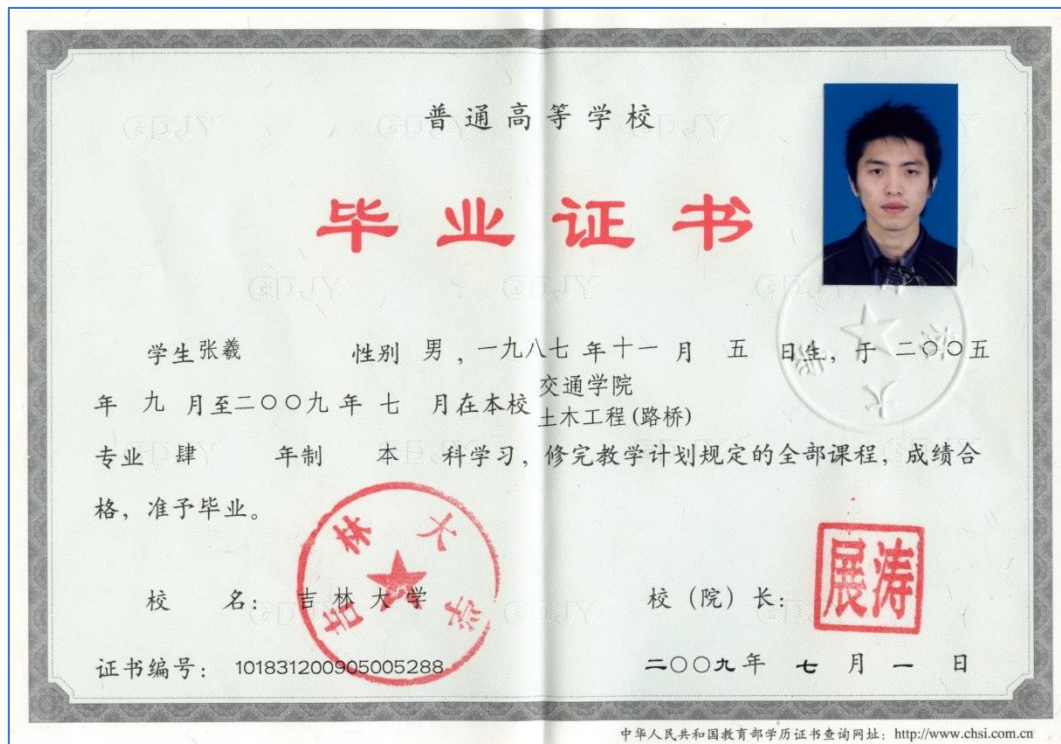 普通高等学校
毕业证书
学生张羲 性别 男，一九八七 年十一 月 五 日生，于 二〇〇五
年 九 月至二〇〇九 年 七 月在本校 交通学院
土木工程(路桥)
专业 肆 年制 本 科学习，修完教学计划规定的全部课程，成绩合
格，准予毕业。
吉林大学
校 名：吉林大学 校（院）长：
展涛
证书编号：101831200905005288 二〇〇九年 七 月 一 日
中华人民共和国教育部学历证书查询网址：http://www.chsi.com.cn